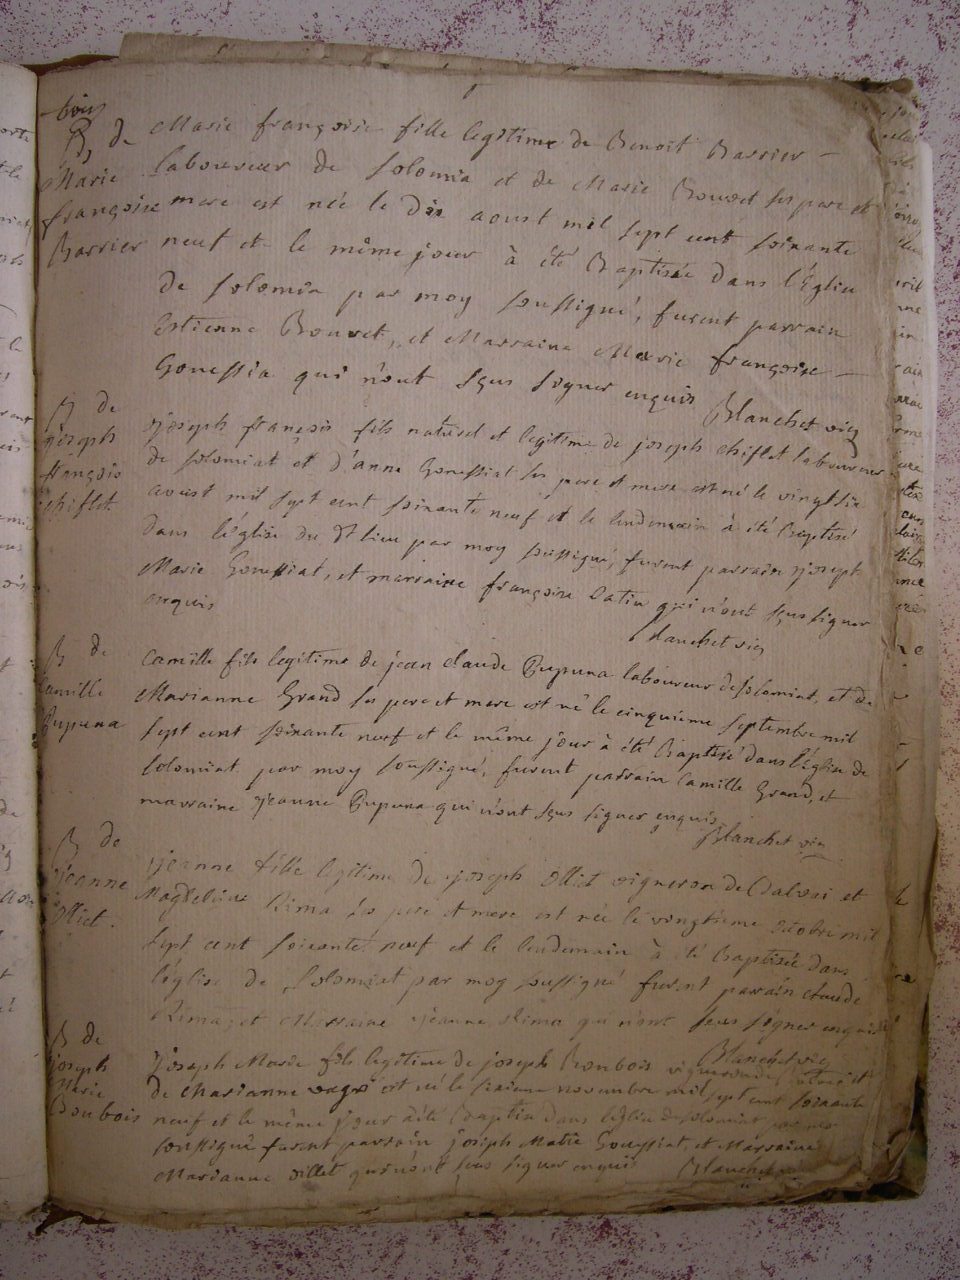 B de
Marie
françoise
Barrier
Marie françoise fille legitime de Benoit Barrier
laboureur de Solomia et de Marie Bouvet ses pere et
mere est née le Dix aoust mil sept cent soixante
neuf et le même jour à été Baptisée dans l'Eglise
de Solomia par moy soussigné, furent parrain
Estienne Bouvet, et Marraine Marie françoise
Gonessia qui n'ont sçus signer enquis
Blanchet vic
B de
joseph
françois
chiflet
joseph françois fils naturel et legitime de joseph chiflet laboureur
de solomiat et d'anne Gonessiat ses pere et mere est né le vingt six
aoust mil sept cent soixante neuf et le lendemain à été baptisé
dans l'église du dt lieu par moy soussigné, furent parrain joseph
Marie Gonessiat, et marraine françoise qui n'ont sçus signer
enquis
Blanchet vic
B de
Camille
Pupuna
Camille fils legitime de jean claude Pupuna laboureur de solomiat, et de
Marianne Grand ses pere et mere est né le cinquieme septembre mil
sept cent soixante neuf et le même jour à été Baptisé dans l'église de
solomiat par moy soussigné, furent parrain Camille Grand, et
marraine jeanne Pupuna qui n'ont sçus signer enquis
Blanchet vic
B de
jeanne
Olliet.
jeanne fille legitime de joseph Olliet vigneron de et
Magdeleine Rima ses pere et mere est née le vingtieme octobre mil
sept cent soixante neuf et le lendemain à été baptisée dans
l'église de Solomiat par moy soussigné furent parrain claude
Rima, et Marraine jeanne Rima qui n'ont sçus signer enquis
Blanchet vic
B de
joseph
Marie
Bonbois
joseph Marie fils legitime de joseph Bonbois vigneron de et
de Marianne est né le sixieme novembre mil sept cent soixante
neuf et le même jour à été baptisé dans l'église de solomiat par moy
soussigné furent parrain joseph Marie Gonessiat, et Marraine
Marianne qui n'ont sçus signer enquis
Blanchet